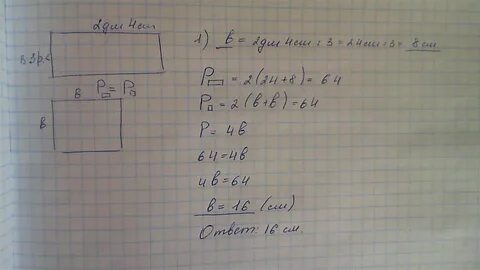 2дм 4см
в 3р.<
P▭ = P□
в
в
1) в = 2дм 4см : 3 = 24см : 3 = 8 см
P▭ = 2(24+8) = 64
P□ = 2(в+в) = 64
P = 4в
64 = 4в
4в = 64
в = 16 (см)
Ответ: 16 см.